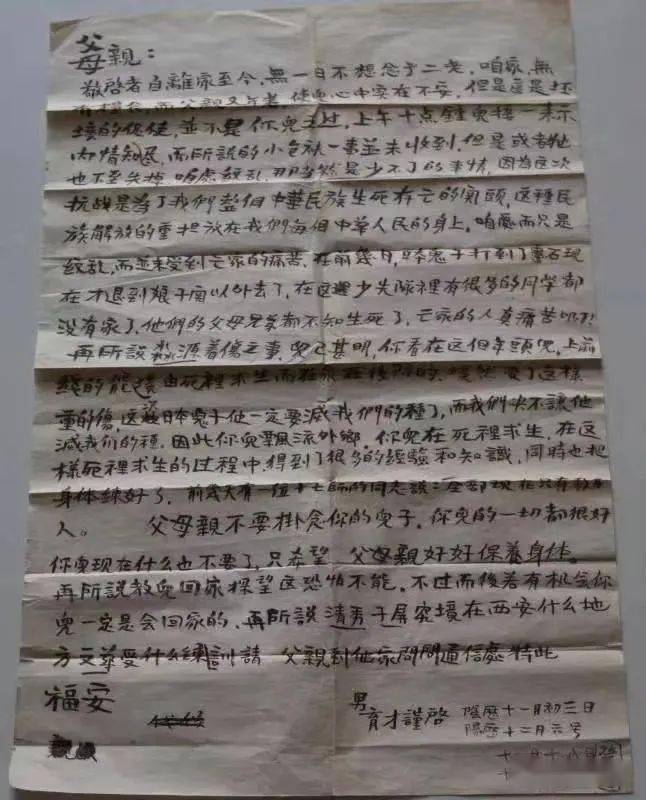 父母親:
敬啓者自離家至今,無一日不想念于二老,咱家,無
有糧食,而父親又年老,使兒心中实在不安,但是這是环
境的促使,並不是你兒之过,上午十点鐘兒接一来示
内情知悉,而所説的小包袱一事並未收到,但是或者他
也不至失掉,咱處紋乱,那当然是少不了的事情,因為这次
抗战是為了我們整個中華民族生死存亡的関頭,这種民
族解放的重担放在我們每個中華人民的身上。咱處而只是
紋乱,而並未受到亡家的痛苦,在前幾日,日本鬼子打到了靈石现
在才退到娘子関以外去了,在这邊少先隊裡有很多的同學都
没有家了,他們的父母兄弟都不知生死了,亡家的人真痛苦
再所説 源着傷之事,兒已甚明,你看在这個年頭兒,上前
綫的能 由死裡求生而在 後隊的, 然受了这樣
重的傷,这 日本鬼子他一定要滅我們的種了,而我們决不讓他
滅我们的種。因此你兒飄流外鄉。你兒在死裡求生,在这
樣死裡求生的过程中,得到了很多的經驗和知識,同時也把
身体練好了。前幾天有一個十七師的同志説:全部现在只有
人。 父母親不要掛念你的兒子。你兒的一切都很好
你兒现在什么也不要了,只希望 父母親好好保養身体。
再所説教兒回家探望这恐怕不能。不过而後若有机会你
兒一定是会回家的。再所説清秀子屏究境在西安什么地
方 受什么訓請 父親到他家問問通信處特此
福安
男
育才謹啓 陰歷十一月初三日
陽歷十二月六号
十一月十八
十